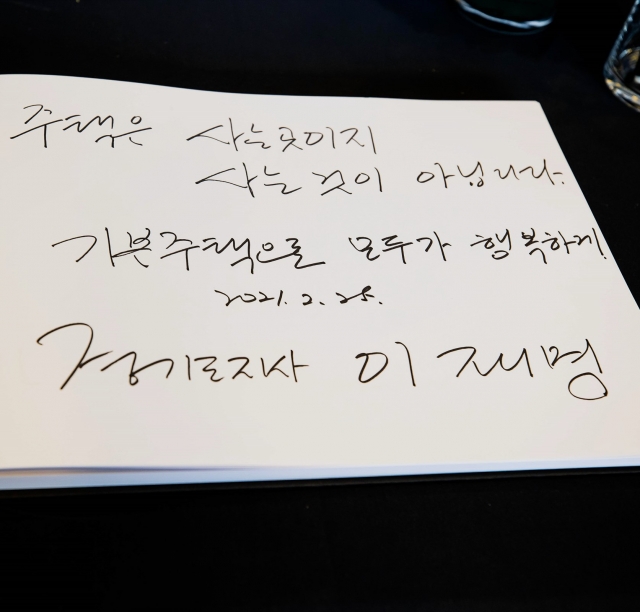 주택은 사는곳이지
사는 것이 아닙니다.
기본주택으로 모두가 행복하게.
2021. 2. 25.
경기도지사 이재명